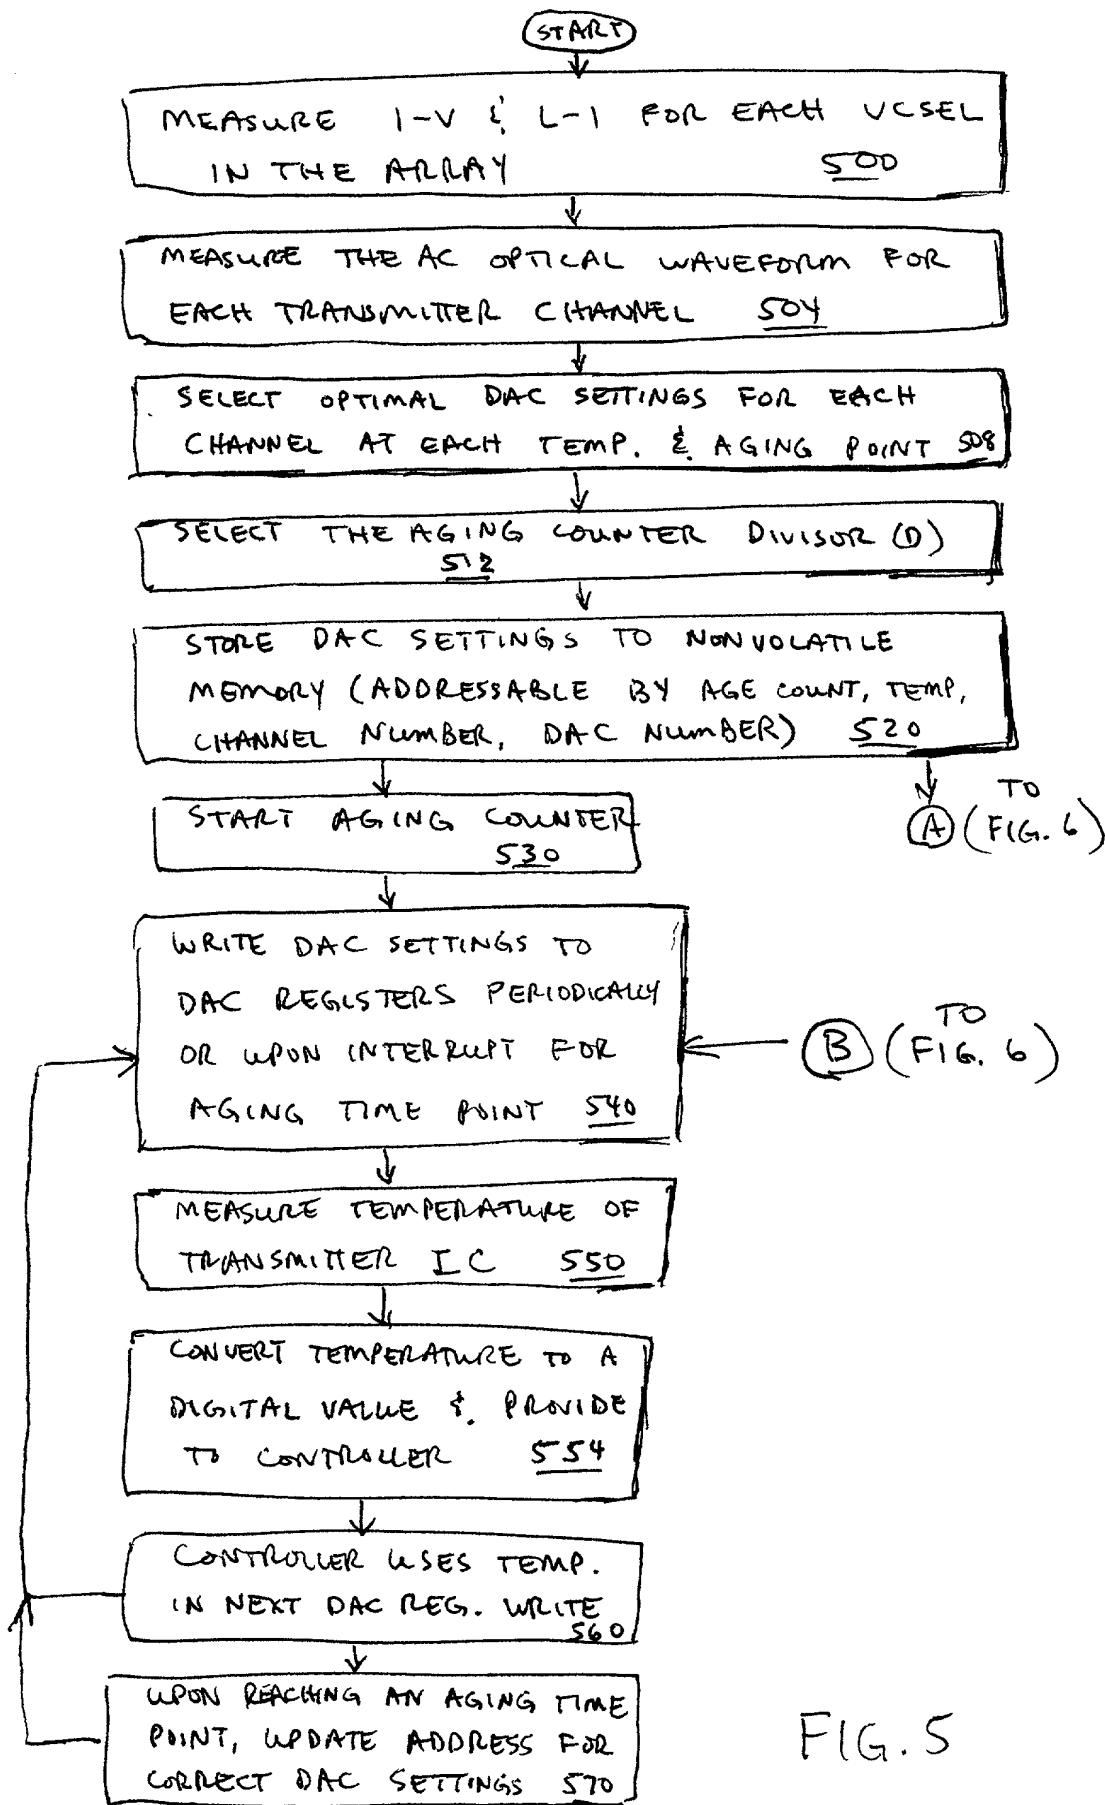 START
MEASURE I-V & L-I FOR EACH VCSEL
IN THE ARRAY 500
MEASURE THE AC OPTICAL WAVEFORM FOR
EACH TRANSMITTER CHANNEL 504
SELECT OPTIMAL DAC SETTINGS FOR EACH
CHANNEL AT EACH TEMP. & AGING POINT 508
SELECT THE AGING COUNTER DIVISOR (D)
512
STORE DAC SETTINGS TO NONVOLATILE
MEMORY (ADDRESSABLE BY AGE COUNT, TEMP,
CHANNEL NUMBER, DAC NUMBER) 520
START AGING COUNTER
530
A (TO
FIG. 6)
WRITE DAC SETTINGS TO
DAC REGISTERS PERIODICALLY
OR UPON INTERRUPT FOR
AGING TIME POINT 540
B (TO
FIG. 6)
MEASURE TEMPERATURE OF
TRANSMITTER IC 550
CONVERT TEMPERATURE TO A
DIGITAL VALUE & PROVIDE
TO CONTROLLER 554
CONTROLLER USES TEMP.
IN NEXT DAC REG. WRITE
560
UPON REACHING AN AGING TIME
POINT, UPDATE ADDRESS FOR
CORRECT DAC SETTINGS 570
FIG. 5